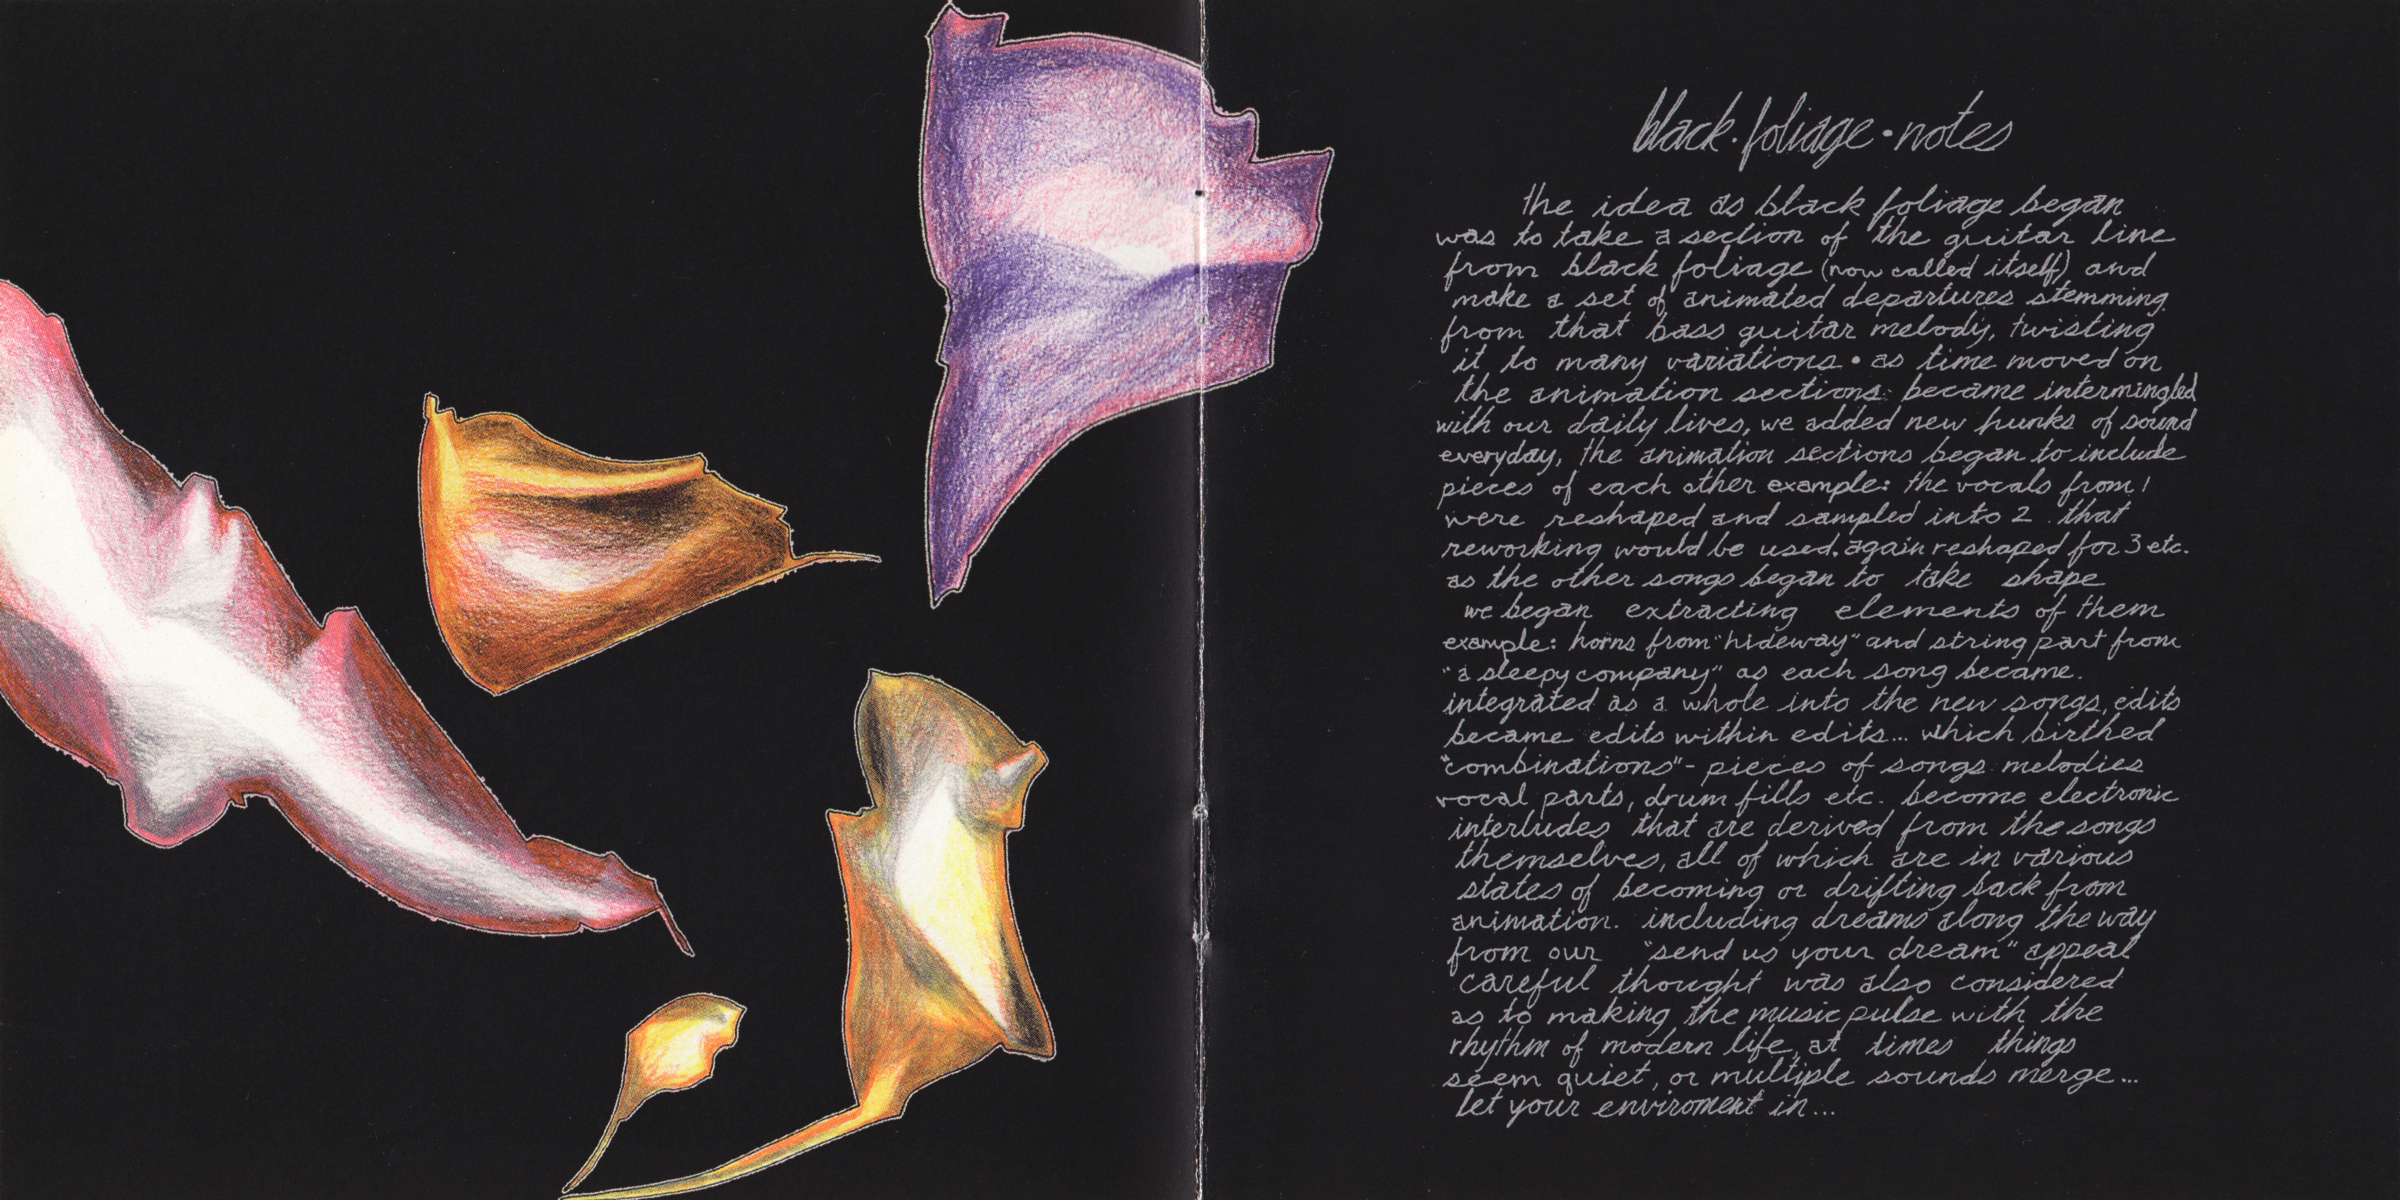 black • foliage • notes
the idea as black foliage began
was to take a section of the guitar line
from black foliage (now called itself) and
make a set of animated departures stemming
from that bass guitar melody, twisting
it, to many variations • as time moved on
the animation sections became intermingled
with our daily lives, we added new hunks of sound
everyday, the animation sections began to include
pieces of each other example: the vocals from 1
were reshaped and sampled into 2. that
reworking would be used, again reshaped for 3 etc.
as the other songs began to take shape
we began extracting elements of them
example: horns from "hideway" and string part from
"a sleepy company" as each song became.
integrated as a whole into the new songs, edits
became edits within edits... which birthed
"combinations" - pieces of songs melodies
vocal parts, drum fills etc. become electronic
interludes that are derived from the songs
themselves, all of which are in various
states of becoming or drifting back from
animation. including dreams along the way
from our "send us your dream" appeal
careful thought was also considered
as to making the music pulse with the
rhythm of modern life, at times things
seem quiet, or multiple sounds merge...
let your enviroment in...